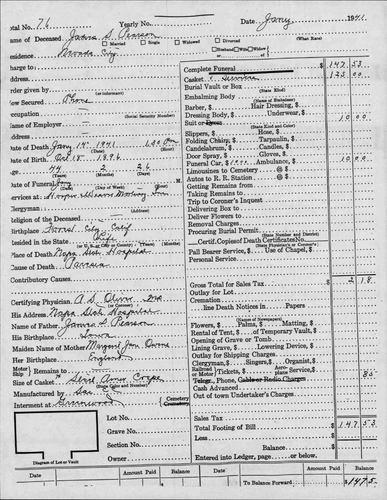 Total No. 76 Yearly No. Date Jany 1941
Name of Deceased James S. Pearson (What Race)
Married Single Widowed Divorced Husband Wife Widow of
Residence Nevada City
Charge to
Address
Order given by (or informant)
How Secured Phone
Occupation (Social Security Number)
Name of Employer
Address
Date of Death Jany 14 1941 (Hour)
Date of Birth Oct 18 1896
Age 44 2 26
Date of Funeral (Day of Week) (Hour)
Services at
Clergyman
Religion of the Deceased
Birthplace Forest City Calif
Resided in the State
Place of Death Napa State Hospital
Cause of Death Paresis
Contributory Causes
Certifying Physician A. S. Oliver
His Address Napa State Hospital
Name of Father James S. Pearson
His Birthplace Iowa
Maiden Name of Mother
Her Birthplace England
Motor Ship Remains to
Size of Casket
(State Color and Number)
Manufactured by
Interment at Greenwood Cemetery Crematory
Lot No.
Grave No.
Section No.
Owner
Diagram of Lot or Vault
Complete Funeral $ 147 53
Casket & Services 125 00
Burial Vault or Box (State Kind)
Embalming Body (Name of Embalmer)
Barber, $ Hair Dressing, $
Dressing Body, $ Underwear, $
Suit or Dress 10 00
(State Kind and Color)
Slippers, $ Hose, $
Folding Chairs, $ Tarpaulin, $
Candelabrum, $ Candles, $
Door Spray, $ Gloves, $
Funeral Car, $ Ambulance, $ 10 00
Limousines to Cemetery @ $
Autos to R. R. Station @ $
Getting Remains from
Taking Remains to
Trip to Coroner's Inquest
Delivering Box to
Deliver Flowers to
Removal Charges
Procuring Burial Permit (State Number and District)
Certif. Copies of Death Certificates No.
(State Physician's or Coroner's)
Pall Bearer Service, $ Use of Chapel, $
Personal Service
Gross Total for Sales Tax $ 2 18
Outlay for Lot
Cremation
line Death Notices in Papers
(Names of Newspapers)
Flowers, $ Palms, $ Matting, $
Rental of Tent, $ of Temporary Vault, $
Opening of Grave or Tomb
Lining Grave, $ Lowering Device, $
Outlay for Shipping Charges
Clergyman, $ Singers, $ Organist, $
Railroad or Motor Tickets, $ Aero. Service, $
Telegr., Phone, Cable or Radio Charges 35
Cash Advanced
Out of town Undertaker's Charges
Sales Tax $
Total Footing of Bill $ 147 53
Less
Balance $
Entered into Ledger, page or below.
Date Amount Paid Balance Date Amount Paid Balance
To Balance Forward $ 147 5